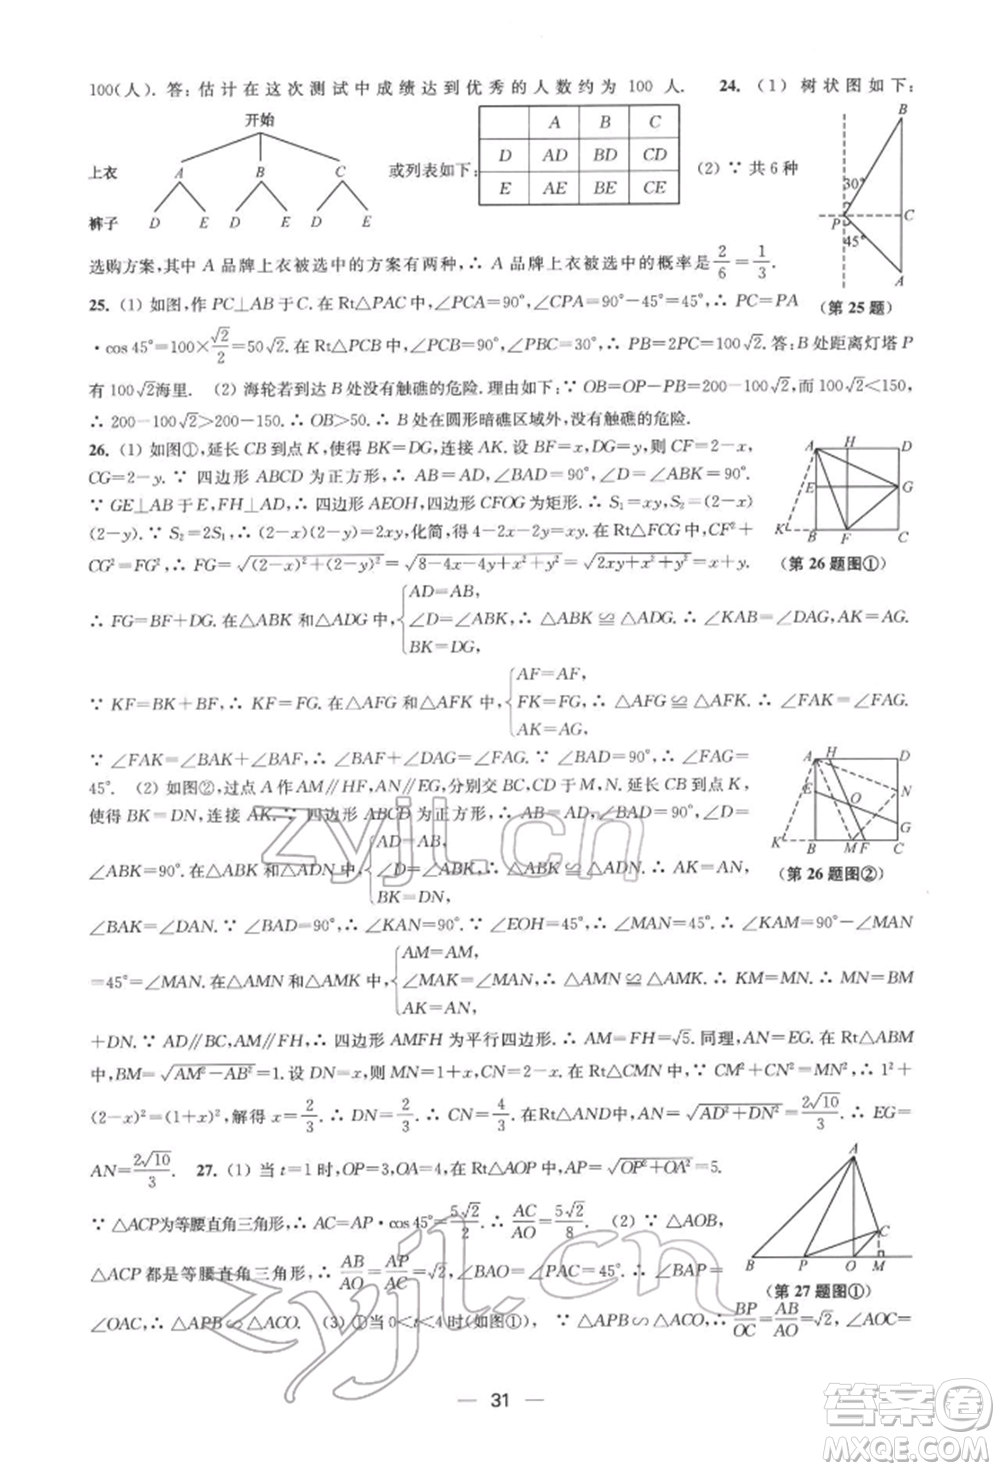 100(人). 答:估计在这次测试中成绩达到优秀的人数约为 100 人. 24. (1) 树状图如下:
开始
上衣 A B C
裤子 D E D E D E
或列表如下:
A B C
D AD BD CD
E AE BE CE
(2) ∵ 共 6 种
B
30°
P C
45°
A
(第 25 题)
选购方案,其中 A 品牌上衣被选中的方案有两种,∴ A 品牌上衣被选中的概率是 2/6=1/3.
25. (1) 如图,作 PC⊥AB 于 C. 在 Rt△PAC 中,∠PCA=90°,∠CPA=90°−45°=45°,∴ PC=PA
·cos 45°=100×√2/2=50√2. 在 Rt△PCB 中,∠PCB=90°,∠PBC=30°,∴ PB=2PC=100√2. 答:B 处距离灯塔 P
有 100√2海里. (2) 海轮若到达 B 处没有触礁的危险. 理由如下:∵ OB=OP−PB=200−100√2,而 100√2<150,
∴ 200−100√2>200−150. ∴ OB>50. ∴ B 处在圆形暗礁区域外,没有触礁的危险.
26. (1) 如图①,延长 CB 到点 K,使得 BK=DG,连接 AK. 设 BF=x,DG=y,则 CF=2−x,
CG=2−y. ∵ 四边形 ABCD 为正方形,∴ AB=AD,∠D=∠BAD=∠ABK=90°.
∵ GE⊥AB 于 E,FH⊥AD 于 H,∴ 四边形 AEOH,四边形 CFOG 为矩形. ∴ S₁=xy,S₂=(2−x)
(2−y). ∵ S₂=2S₁,∴ (2−x)(2−y)=2xy,化简,得 4−2x−2y=xy. 在 Rt△FCG 中,CF²+
CG²=FG²,∴ FG=√((2−x)²+(2−y)²)=√(8−4x−4y+x²+y²)=√(2xy+x²+y²)=x+y.
A H D
E G
K B F C
(第 26 题图①)
∴ FG=BF+DG. 在△ABK 和△ADG 中,{AD=AB, ∠D=∠ABK, BK=DG, ∴ △ABK≌△ADG. ∴ ∠KAB=∠DAG,AK=AG.
∵ KF=BK+BF,∴ KF=FG. 在△AFG 和△AFK 中,{AF=AF, FK=FG, AK=AG, ∴ △AFG≌△AFK. ∴ ∠FAK=∠FAG.
∵ ∠FAK=∠BAK+∠BAF,∴ ∠BAF+∠DAG=∠FAG. ∵ ∠BAD=90°,∴ ∠FAG=
45°. (2) 如图②,过点 A 作 AM∥HF,AN∥EG,分别交 BC于 M、N. 延长 CB 到点 K,
使得 BK=DN,连接 AK. ∵ 四边形 ABCD 为正方形,∴ AB=AD,∠BAD=∠D=
A H D
E N
O
G
K B M F C
(第 26 题图②)
∠ABK=90°. 在△ABK 和△ADN 中,{AD=AB, ∠D=∠ABK, BK=DN, ∴ △ABK≌△ADN. ∴ AK=AN,
∠BAK=∠DAN. ∵ ∠BAD=90°,∴ ∠KAN=90°. ∵ ∠EOH=45°,∴ ∠MAN=45°. ∴ ∠KAM=90°−∠MAN
=45°=∠MAN. 在△AMN 和△AMK 中,{AM=AM, ∠MAK=∠MAN, AK=AN, ∴ △AMN≌△AMK. ∴ KM=MN. ∴ MN=BM
+DN. ∵ AD∥BC,AM∥HF,∴ 四边形 AMFH 为平行四边形. ∴ AM=FH=√5. 同理,AN=EG. 在 Rt△ABM
中,BM=√(AM²−AB²)=1. 设 DN=x,则 MN=1+x,CN=2−x. 在 Rt△CMN 中,∵ CM²+CN²=MN²,∴ 1²+
(2−x)²=(1+x)²,解得 x=2/3. ∴ DN=2/3. ∴ CN=4/3. 在Rt△AND中,∴ AN=√(AD²+DN²)=2√10/3. ∴ EG=
AN=2√10/3. 27. (1) 当 t=1 时,OP=3,OA=4,在 Rt△AOP 中,AP=√(OP²+OA²)=5.
∵ △ACP为等腰直角三角形,∴ AC=AP·cos 45°=5√2/2. ∴ AC/AO=5√2/8. (2) ∵ △AOB,
△ACP 都是等腰直角三角形,∴ AB/AO=AP/AC=√2,∠BAO=∠PAC=45°. ∴ ∠BAP=
∠OAC,∴ △APB∽△ACO. (3) ①当 0<t<4时(如图①), ∵ △APB∽△ACO,∴ BP/OC=AB/AO=√2,∠AOC=
A
C
B P O M
(第 27 题图①)
zyjl.cn
zyjl.cn
31
答案圈
MXQE.COM